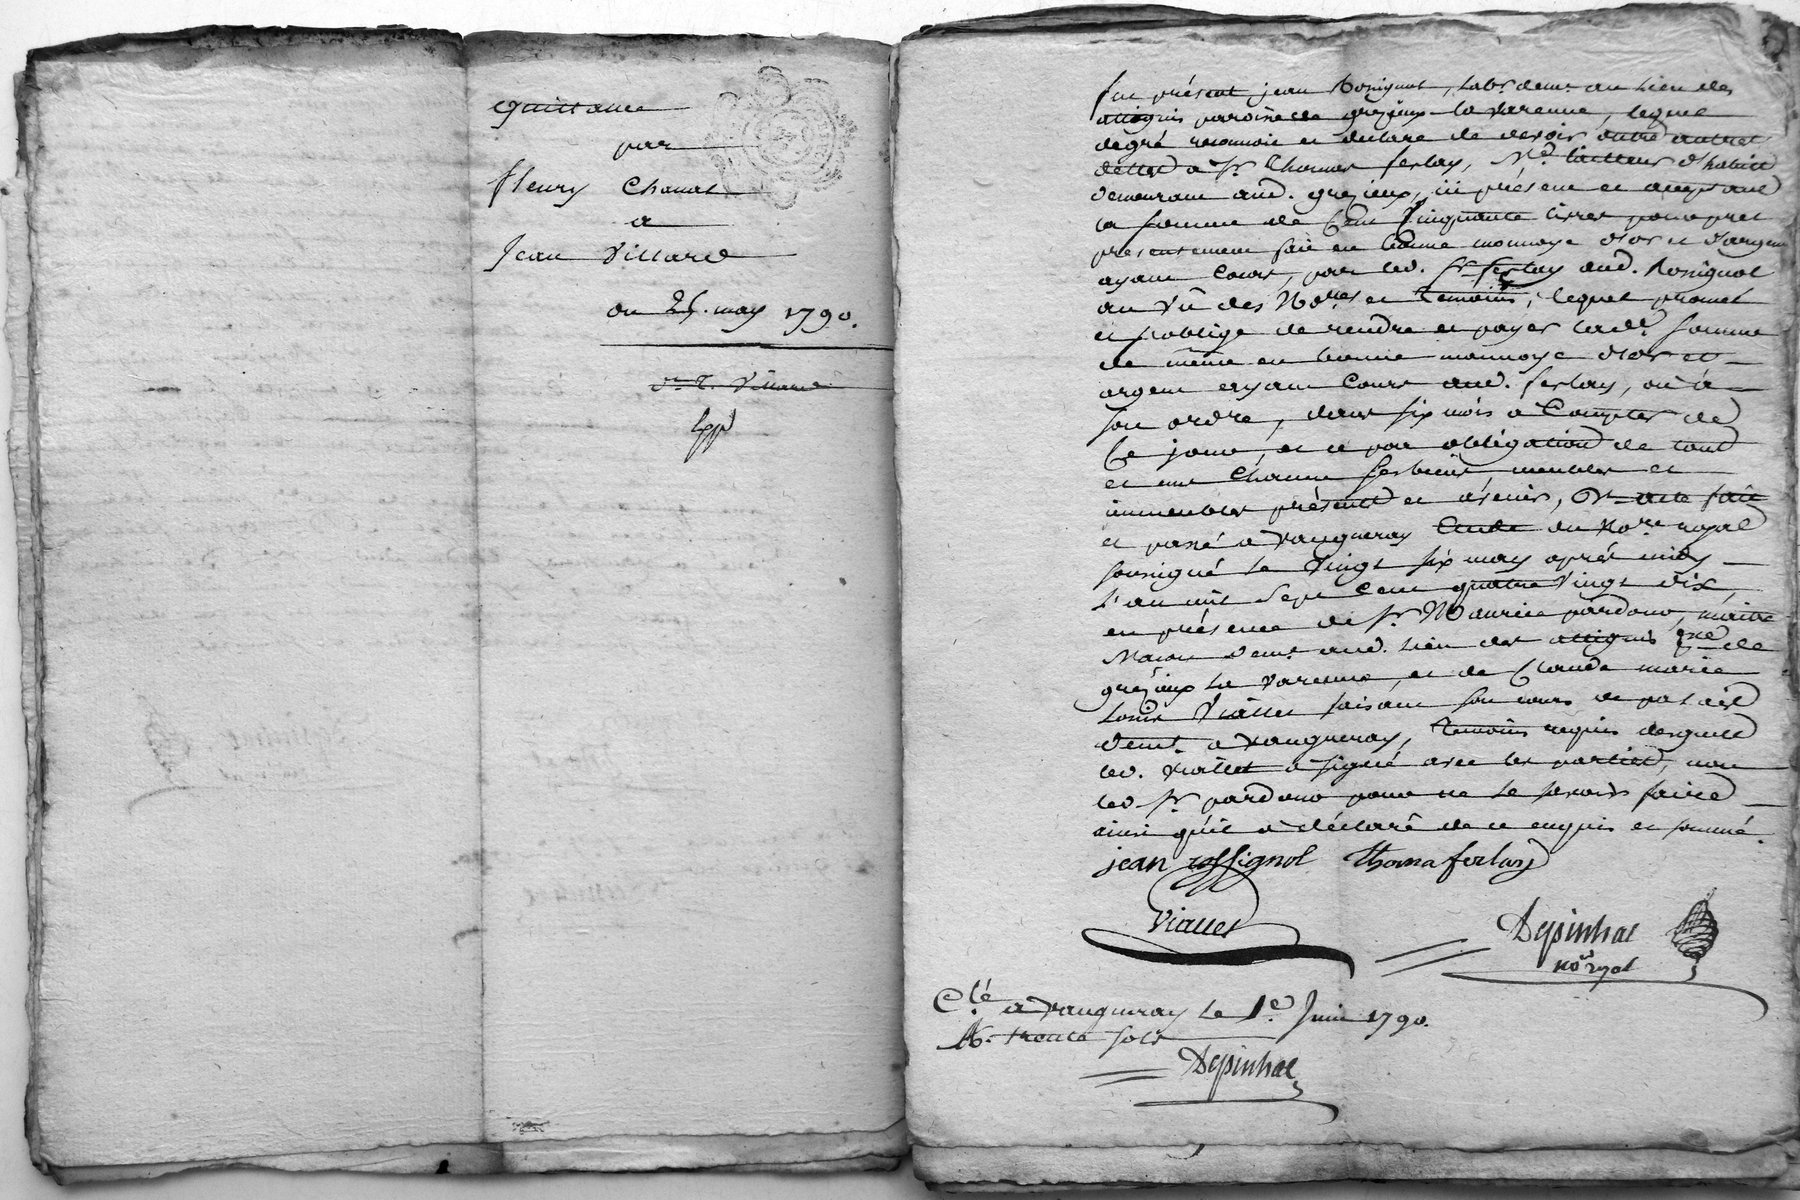 quittance
par
fleury Chanal
a
Jean Villard
du 25. may 1790.
Villard
fut présent jean Rosignol, labr. demt. au lieu des
attignis paroisse de grezieux la varenne, lequel
degré reconnoit et declare de devoir outre autres
dettes a Sr. Thomas ferlay, Md. tailleur d'habits
demeurant aud. grezieux, ici présent et acceptant
la somme de Cent Cinquante livres pour pret
présentement fait en bonne monnoye d'or et d'argent
ayant Cours, par led. Sr. ferlay aud. Rosignol
au vû des Nores et temoins, lequel promet
et s'oblige de rendre et payer lade. somme
de même en bonne monnoye d'or et
argent ayant Cours aud. ferlay, ou à
son ordre, dans six mois a Compter de
Ce jour, et ce par obligation de tous
et un Chacun ses biens meubles et
immeubles présents et avenir, Dt acte fait
et passé a vaugneray Etude du Nore. royal
soussigné le Vingt six may après midy
l'an mil Sept Cent quatre Vingt dix,
en présence de Sr. Maurice pardono, maitre
Macon demt. aud. lieu des attignis psse de
grezieux la varenne, et de Claude marie
Louis Viallet faisant son cours de
demt. a vaugneray, temoins requis desquels
led. viallet a signé avec les parties, non
led. Sr. pardono pour ne le savoir faire
ainsi qu'il a déclaré de ce enquis et sommé.
jean rossignol thoma ferlay
Viallet
Depinhac
nore ryal
Clé. a vaugneray le 1er. Juin 1790.
R. trente sols
Depinhac